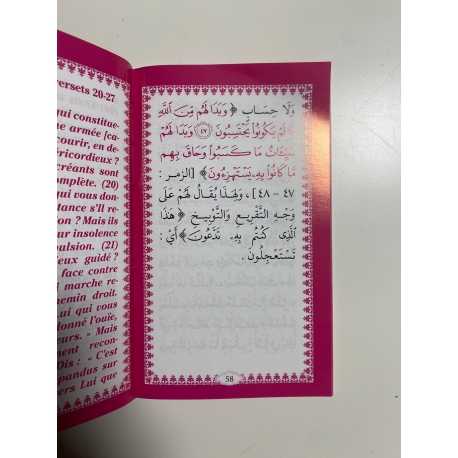 ersets 20-27
qui constitue-
ne armée [ca-
courir, en de-
éricordieux ?
créants sont
omplète. (20)
qui vous don-
tance s'Il re-
ion ? Mais ils
ur insolence
ulsion. (21)
eux guidé ?
face contre
marche re-
emin droit.
Lui qui vous
donné l'ouïe,
urs. « Mais
ment recon-
Dis : « C'est
pandus sur
ers Lui que
وَلَا حِسَابٍ ﴿ وَبَدَا لَهُم مِّنَ ٱللَّهِ
مَا لَمْ يَكُونُوا۟ يَحْتَسِبُونَ ٤٧ وَبَدَا لَهُمْ
سَيِّـَٔاتُ مَا كَسَبُوا۟ وَحَاقَ بِهِم
مَّا كَانُوا۟ بِهِۦ يَسْتَهْزِءُونَ ﴾ [الزمر :
٤٧ – ٤٨] ، وَلِهَذَا يُقَالُ لَهُمْ عَلَى
وَجْهِ التَّقْرِيعِ وَالتَّوْبِيخِ ﴿ هَٰذَا
ٱلَّذِى كُنتُم بِهِۦ تَدَّعُونَ ﴾ أَيْ :
تَسْتَعْجِلُونَ .
58